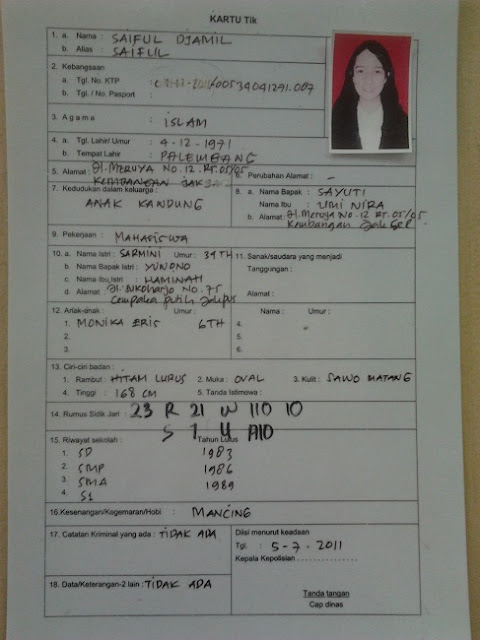 KARTU Tik
1. a. Nama : SAIFUL DJAMIL
b. Alias : SAIFUL
2. Kebangsaan
a. Tgl. No. KTP : 2011/00534041291.007
b. Tgl. / No. Pasport :
3. Agama : ISLAM
4. a. Tgl. Lahir/ Umur : 4-12-1971
b. Tempat Lahir : PALEMBANG
5. Alamat : Jl. MERUYA No.12. RT.05/05
KEMBANGAN JAKBAR
6. Perubahan Alamat : -
7. Kedudukan dalam keluarga :
ANAK KANDUNG
8. a. Nama Bapak : SAYUTI
Nama Ibu : UMI NIRA
b. Alamat : Jl. Meruya No 12 RT. 05/05
Kembangan
9. Pekerjaan : MAHASISWA
10. a. Nama Istri : SARMINI Umur : 34TH
b. Nama Bapak Istri : YUNONO
c. Nama Ibu Istri : HAMINAH
d. Alamat : No. 75
Cempaka putih Jakpus
11. Sanak/saudara yang menjadi
Tanggungan :
Alamat :
12. Anak-anak : Umur :
1. MONIKA ERIS 6TH
2.
3.
Nama : Umur :
4.
5.
6.
13. Ciri-ciri badan :
1. Rambut : HITAM LURUS 2. Muka : OVAL 3. Kulit : SAWO MATANG
4. Tinggi : 168 CM 5. Tanda Istimewa :
14. Rumus Sidik Jari : 23 R 21 W 110 10
S 1 U A10
15. Riwayat sekolah : Tahun Lulus
1. SD 1983
2. SMP 1986
3. SMA 1989
4. S1
16. Kesenangan/Kegemaran/Hobi : MANCING
17. Catatan Kriminal yang ada : TIDAK ADA
Diisi menurut keadaan
Tgl. : 5-7-2011
Kepala Kepolisian . . . . . . . . . . . . . .
18. Data/Keterangan-2 lain : TIDAK ADA
Tanda tangan
Cap dinas